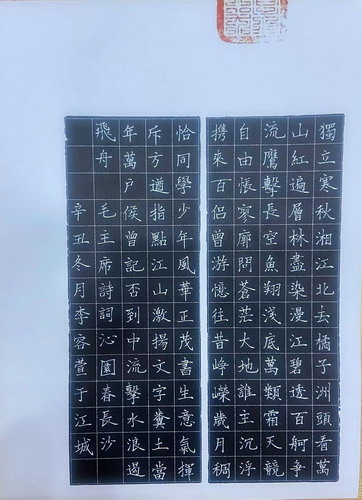 獨立寒秋湘江北去橘子洲頭看萬
山紅遍層林盡染漫江碧透百舸爭
流鷹擊長空魚翔淺底萬類霜天競
自由悵寥廓問蒼茫大地誰主沉浮
携來百侶曾游憶往昔崢嶸歲月稠
恰同學少年風華正茂書生意氣揮
斥方遒指點江山激揚文字糞土當
年萬户侯曾記否到中流擊水浪遏
飛舟 毛主席詩詞沁園春長沙
辛丑冬月李容萱于江城